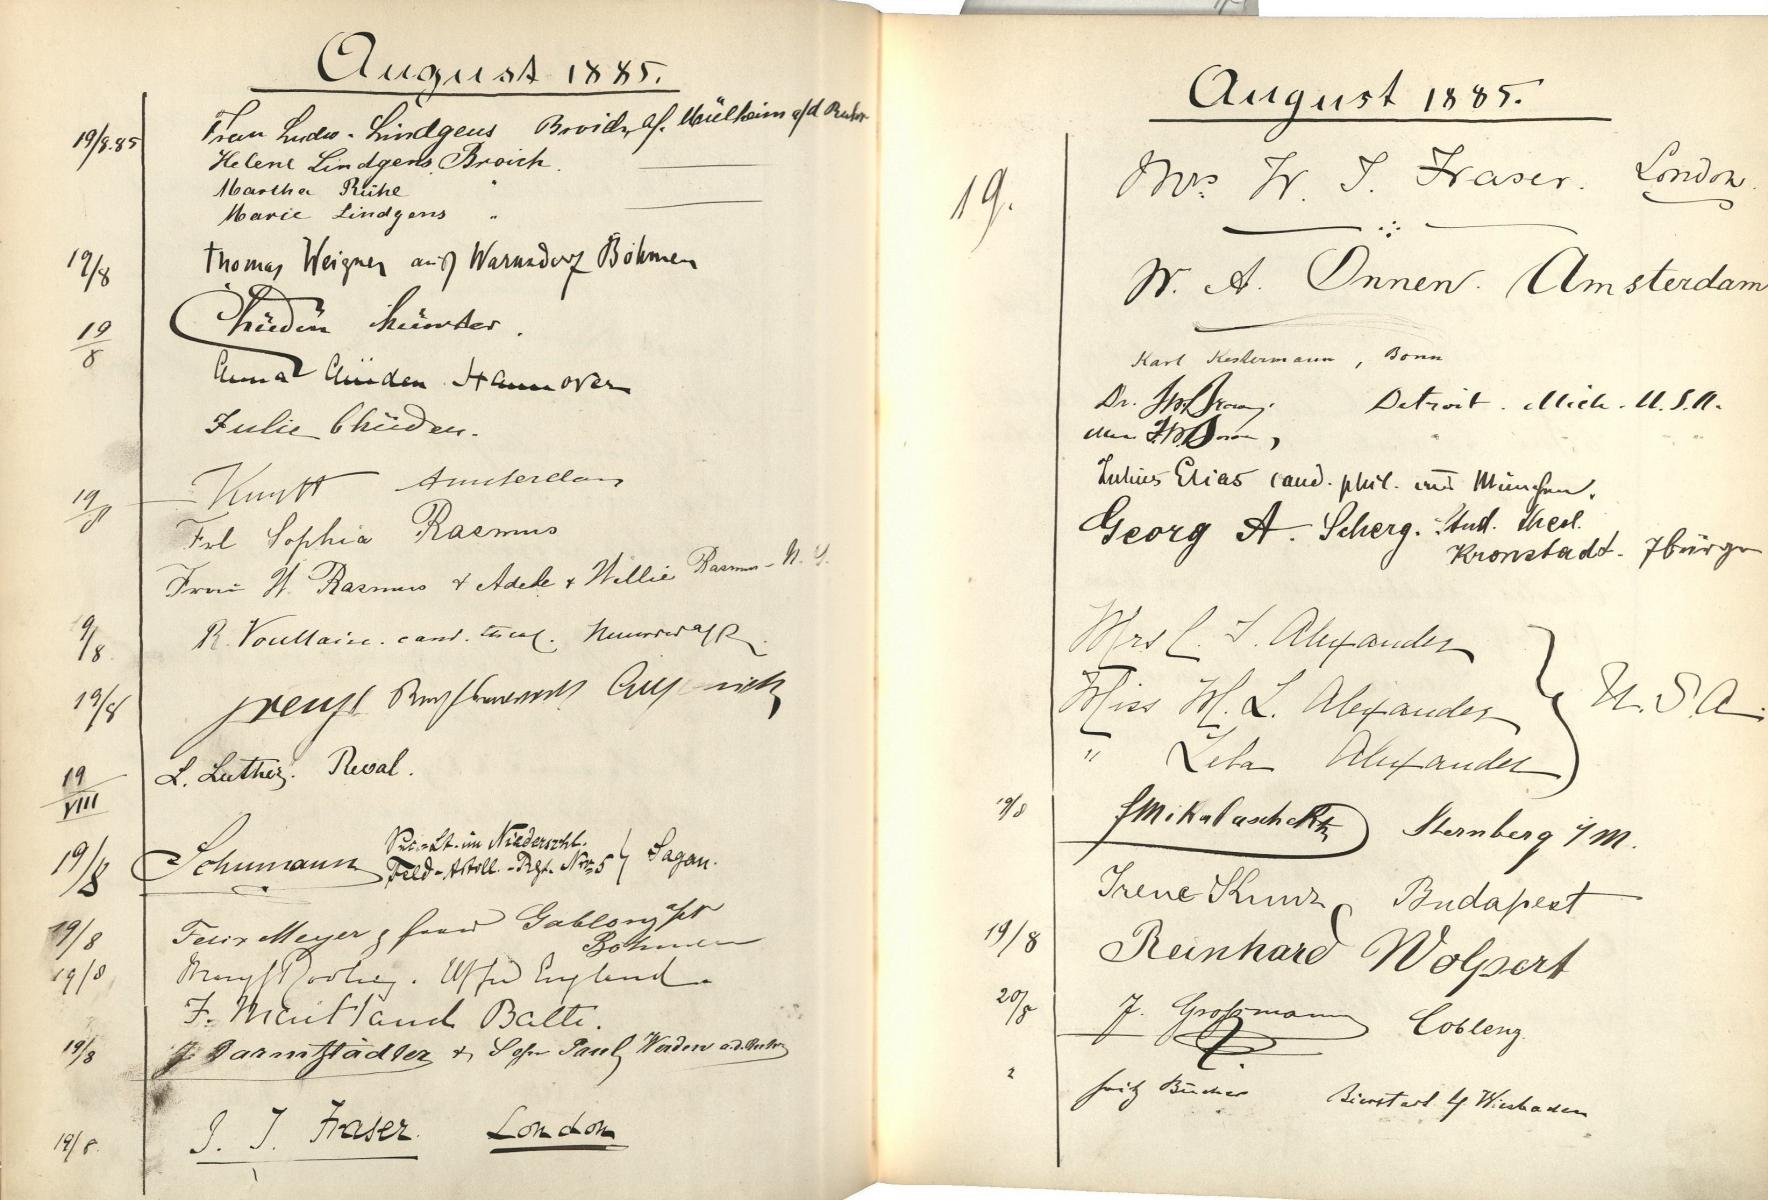 August 1885.
19/8.85 Frau Ludw. Lindgens Mülheim a/d Ruhr
Helene Lindgens, Broich.
Martha Rühe "
Marie Lindgens "
19/8 Thomas Weigner aus Warnsdorf Böhmen
19/8 Chüden Münster.
Anna Chüden Hannover
Julie Chüden.
19/8 Amsterdam
Frl Sophia Rasmus
Frau W. Rasmus & Adele & Willie Rasmus - N. Y.
9/8 R. Voullaire. cand. theol.
19/8
19/VIII L. Luther. Reval.
19/8 Schumann Sec.-Lt. im Niederschl. Feld-Artill.-Rgt. Nr. 5 } Sagan.
19/8 Felix Meyer & Frau Gablonz a/N
Böhmen
19/8 England.
F. Maitland
19/8 J. Darmstädter & Sohn Paul, Werden a.d. Ruhr
19/8 J. T. Fraser. London
August 1885.
19. Mrs W. T. Fraser. London.
W. A. Onnen. Amsterdam
Karl Kestermann, Bonn
Dr. Detroit. Mich. U.S.A.
Julius Elias cand. phil. aus München.
Georg A. Scherg. Stud. theol.
Kronstadt. 7bürgen
Mrs C. T. Alexander
Miss M. L. Alexander } U.S.A.
" Lela Alexander
19/8 Sternberg i/M.
Irene Kunz Budapest
19/8 Reinhard Wolpert
20/8 J. Großmann Coblenz
" Fritz Bücher Bierstadt b/ Wiesbaden